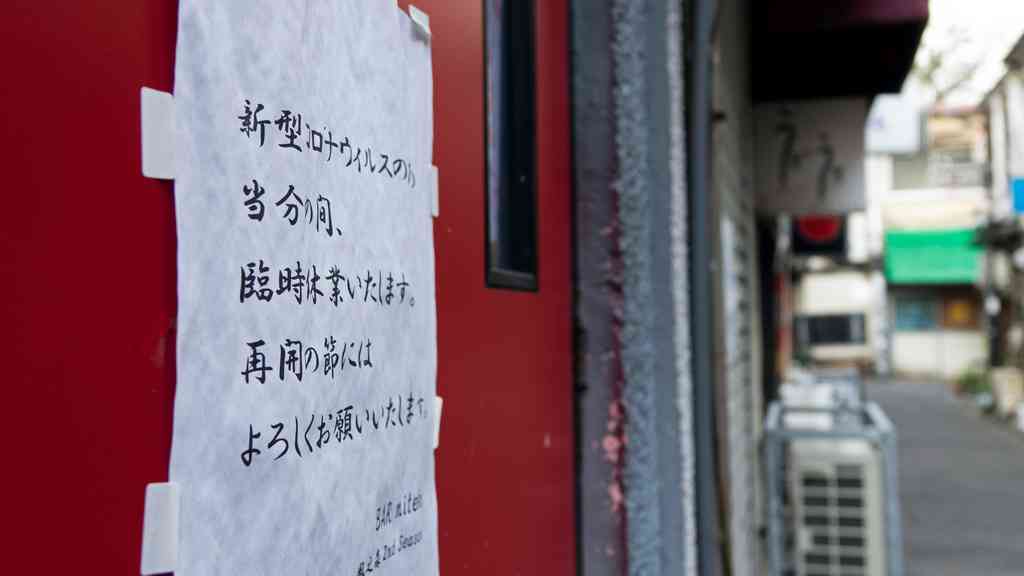 新型コロナウィルスの
当分の間、
臨時休業いたします。
再開の節には
よろしくお願いいたします。
BAR miten
2nd Season